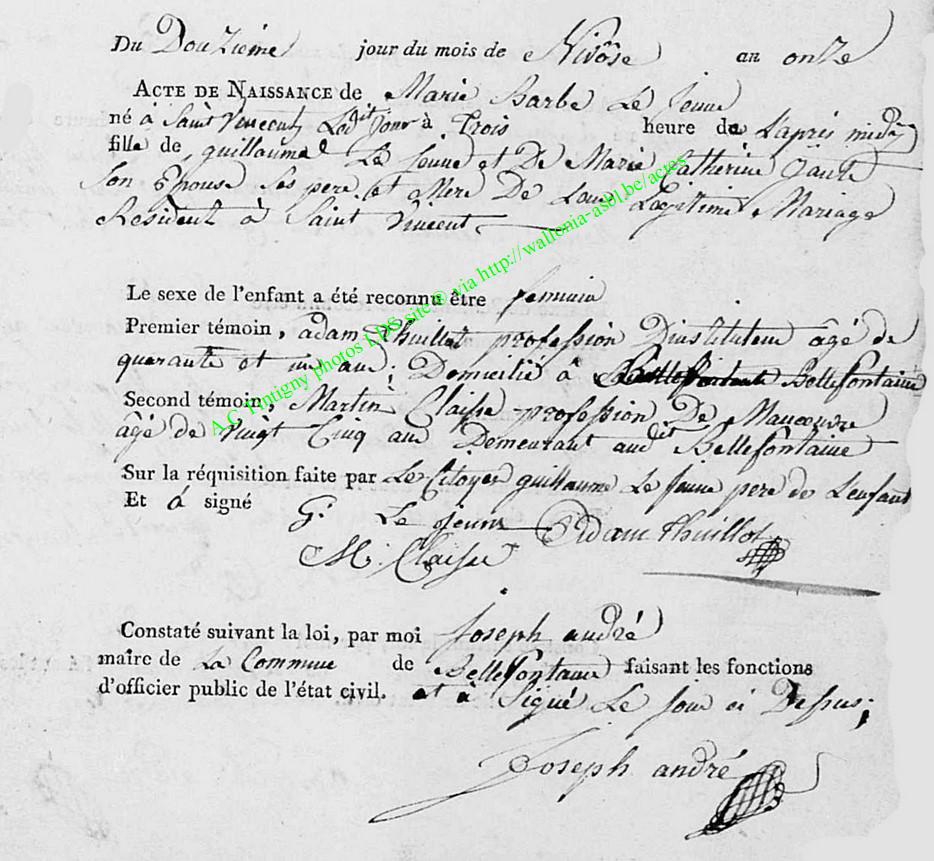 Du Douzieme jour du mois de Nivôse an onze
ACTE DE NAISSANCE de Marie Barbe Le Jeune
né à Saint Vincent Ledit Jour à Trois heure de L'apres midy
fille de guillaume Le Jeune et De Marie Catherine
Son Epouse Ses pere et Mere De Leur Légitime Mariage
Résident à Saint Vincent
Le sexe de l'enfant a été reconnu être feminin
Premier témoin, adam thuillot profession D'instituteur âgé de
quarante et un ans; Domicilié à Bellefontaine
Second témoin, Martin Claisse profession De Maneuvre
âgé de Vingt Cinq ans Demeurant audit Bellefontaine
Sur la réquisition faite par Le Citoyen guillaume Le Jeune pere de L'enfant
Et à signé
G. Le Jeune Adam thuillot
M. Claisse
Constaté suivant la loi, par moi Joseph andré
maire de La Commune de Bellefontaine faisant les fonctions
d'officier public de l'état civil. et à Signé Le Jour ci Dessus;
Joseph andré
A.C. Tintigny photos LDS site® via http://wallonia-asbl.be/actes